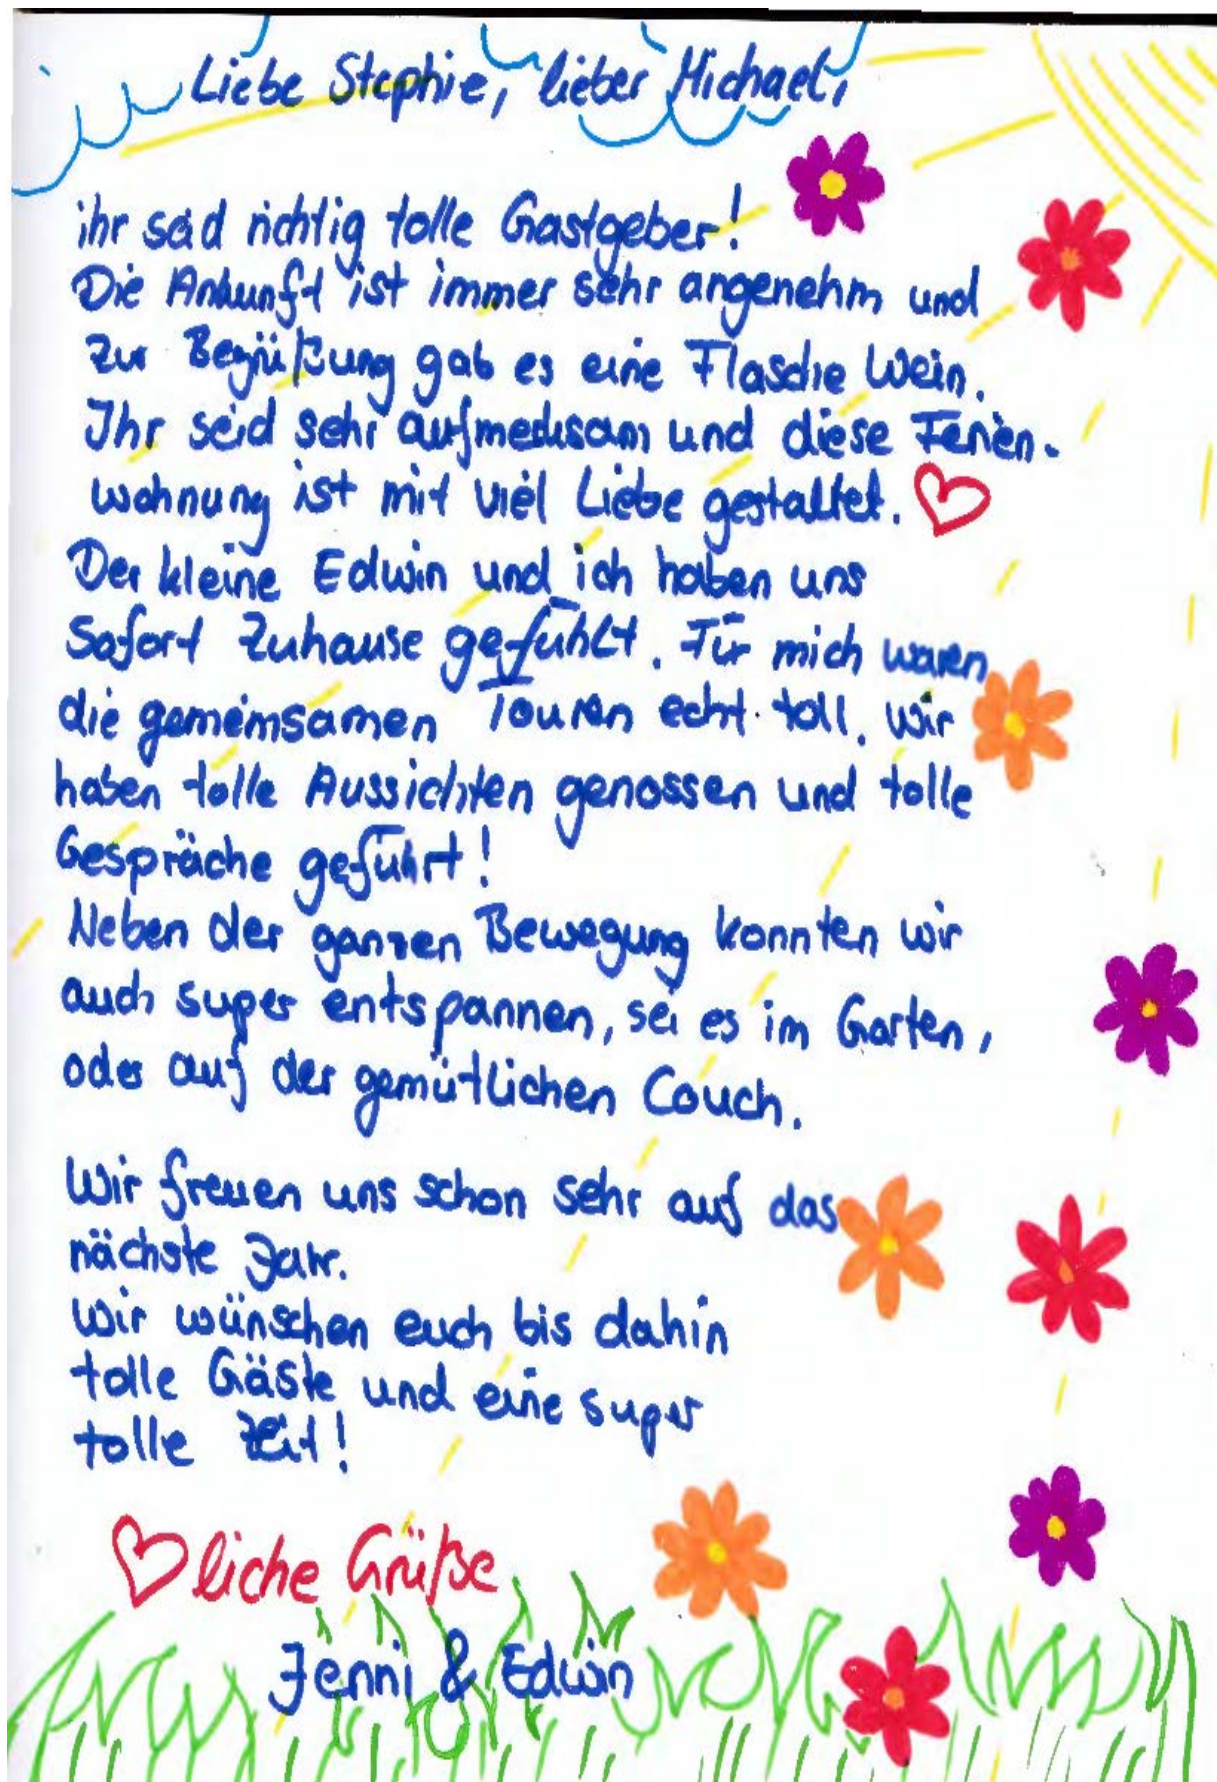 Liebe Stephie, lieber Michael,
ihr seid richtig tolle Gastgeber!
Die Ankunft ist immer sehr angenehm und
zur Begrüßung gab es eine Flasche Wein.
Ihr seid sehr aufmerksam und diese Ferien-
wohnung ist mit viel Liebe gestaltet. ♡
Der kleine Edwin und ich haben uns
sofort Zuhause gefühlt. Für mich waren
die gemeinsamen Touren echt toll. Wir
haben tolle Aussichten genossen und tolle
Gespräche geführt!
Neben der ganzen Bewegung konnten wir
auch super entspannen, sei es im Garten,
oder auf der gemütlichen Couch.
Wir freuen uns schon sehr auf das
nächste Jahr.
Wir wünschen euch bis dahin
tolle Gäste und eine super
tolle Zeit!
♡liche Grüße
Jenni & Edwin